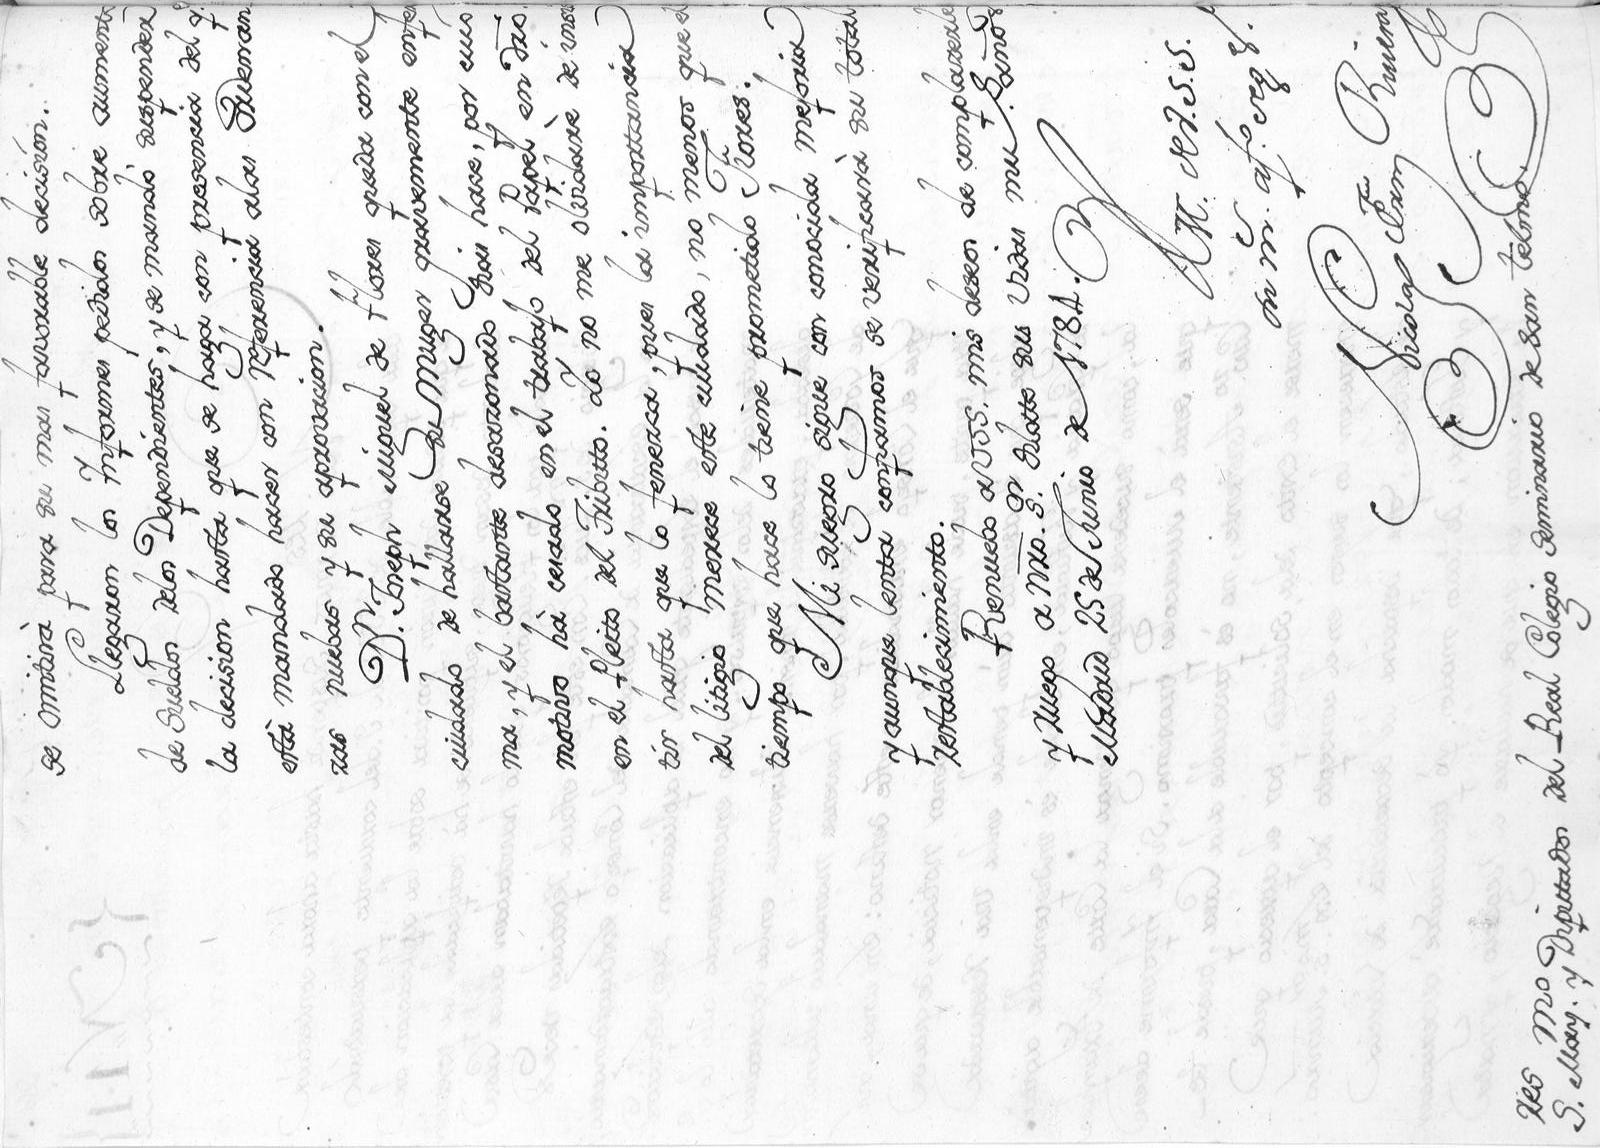 se omitirà para su mas favorable decision.
Llegaron los Ynformes pedidos sobre aumento
de Sueldos delos Dependientes, y se mandò suspender
la decision hasta que se haga con presencia del q.
està mandado hacer con referencia alas Buenan
zas nuebas y su aprovacion.
Dn. Joseph Miguel de Flores queda con el
cuidado de hallarse su Muger gravemente enfer
ma, y el bastante desazonado dias hace, por cuio
motivo hà cesado en el trabajo del Papel en dro.
en el Pleito del Tributo. Yo no me olvidarè de insis
tir hasta que lo fenezca, pues la importancia
del litigio merece este cuidado, no menos que el
tiempo que hace lo tiene prometido Flores.
Mi suegro sigue con conocida mejoria
y aunque lenta confiamos se verificarà su total
restablecimiento.
Renuebo a VSS. mis deseos de complacerle
y ruego a Nro. Sor. dilate sus vidas ms. años
Madrid 25 de Junio de 1784.
B. L. M. de V.S.S.
su mr. afto. segro.
Nicolas Rivera
res mo
S. May. y Diputados del Real Colegio Seminario de San Telmo.